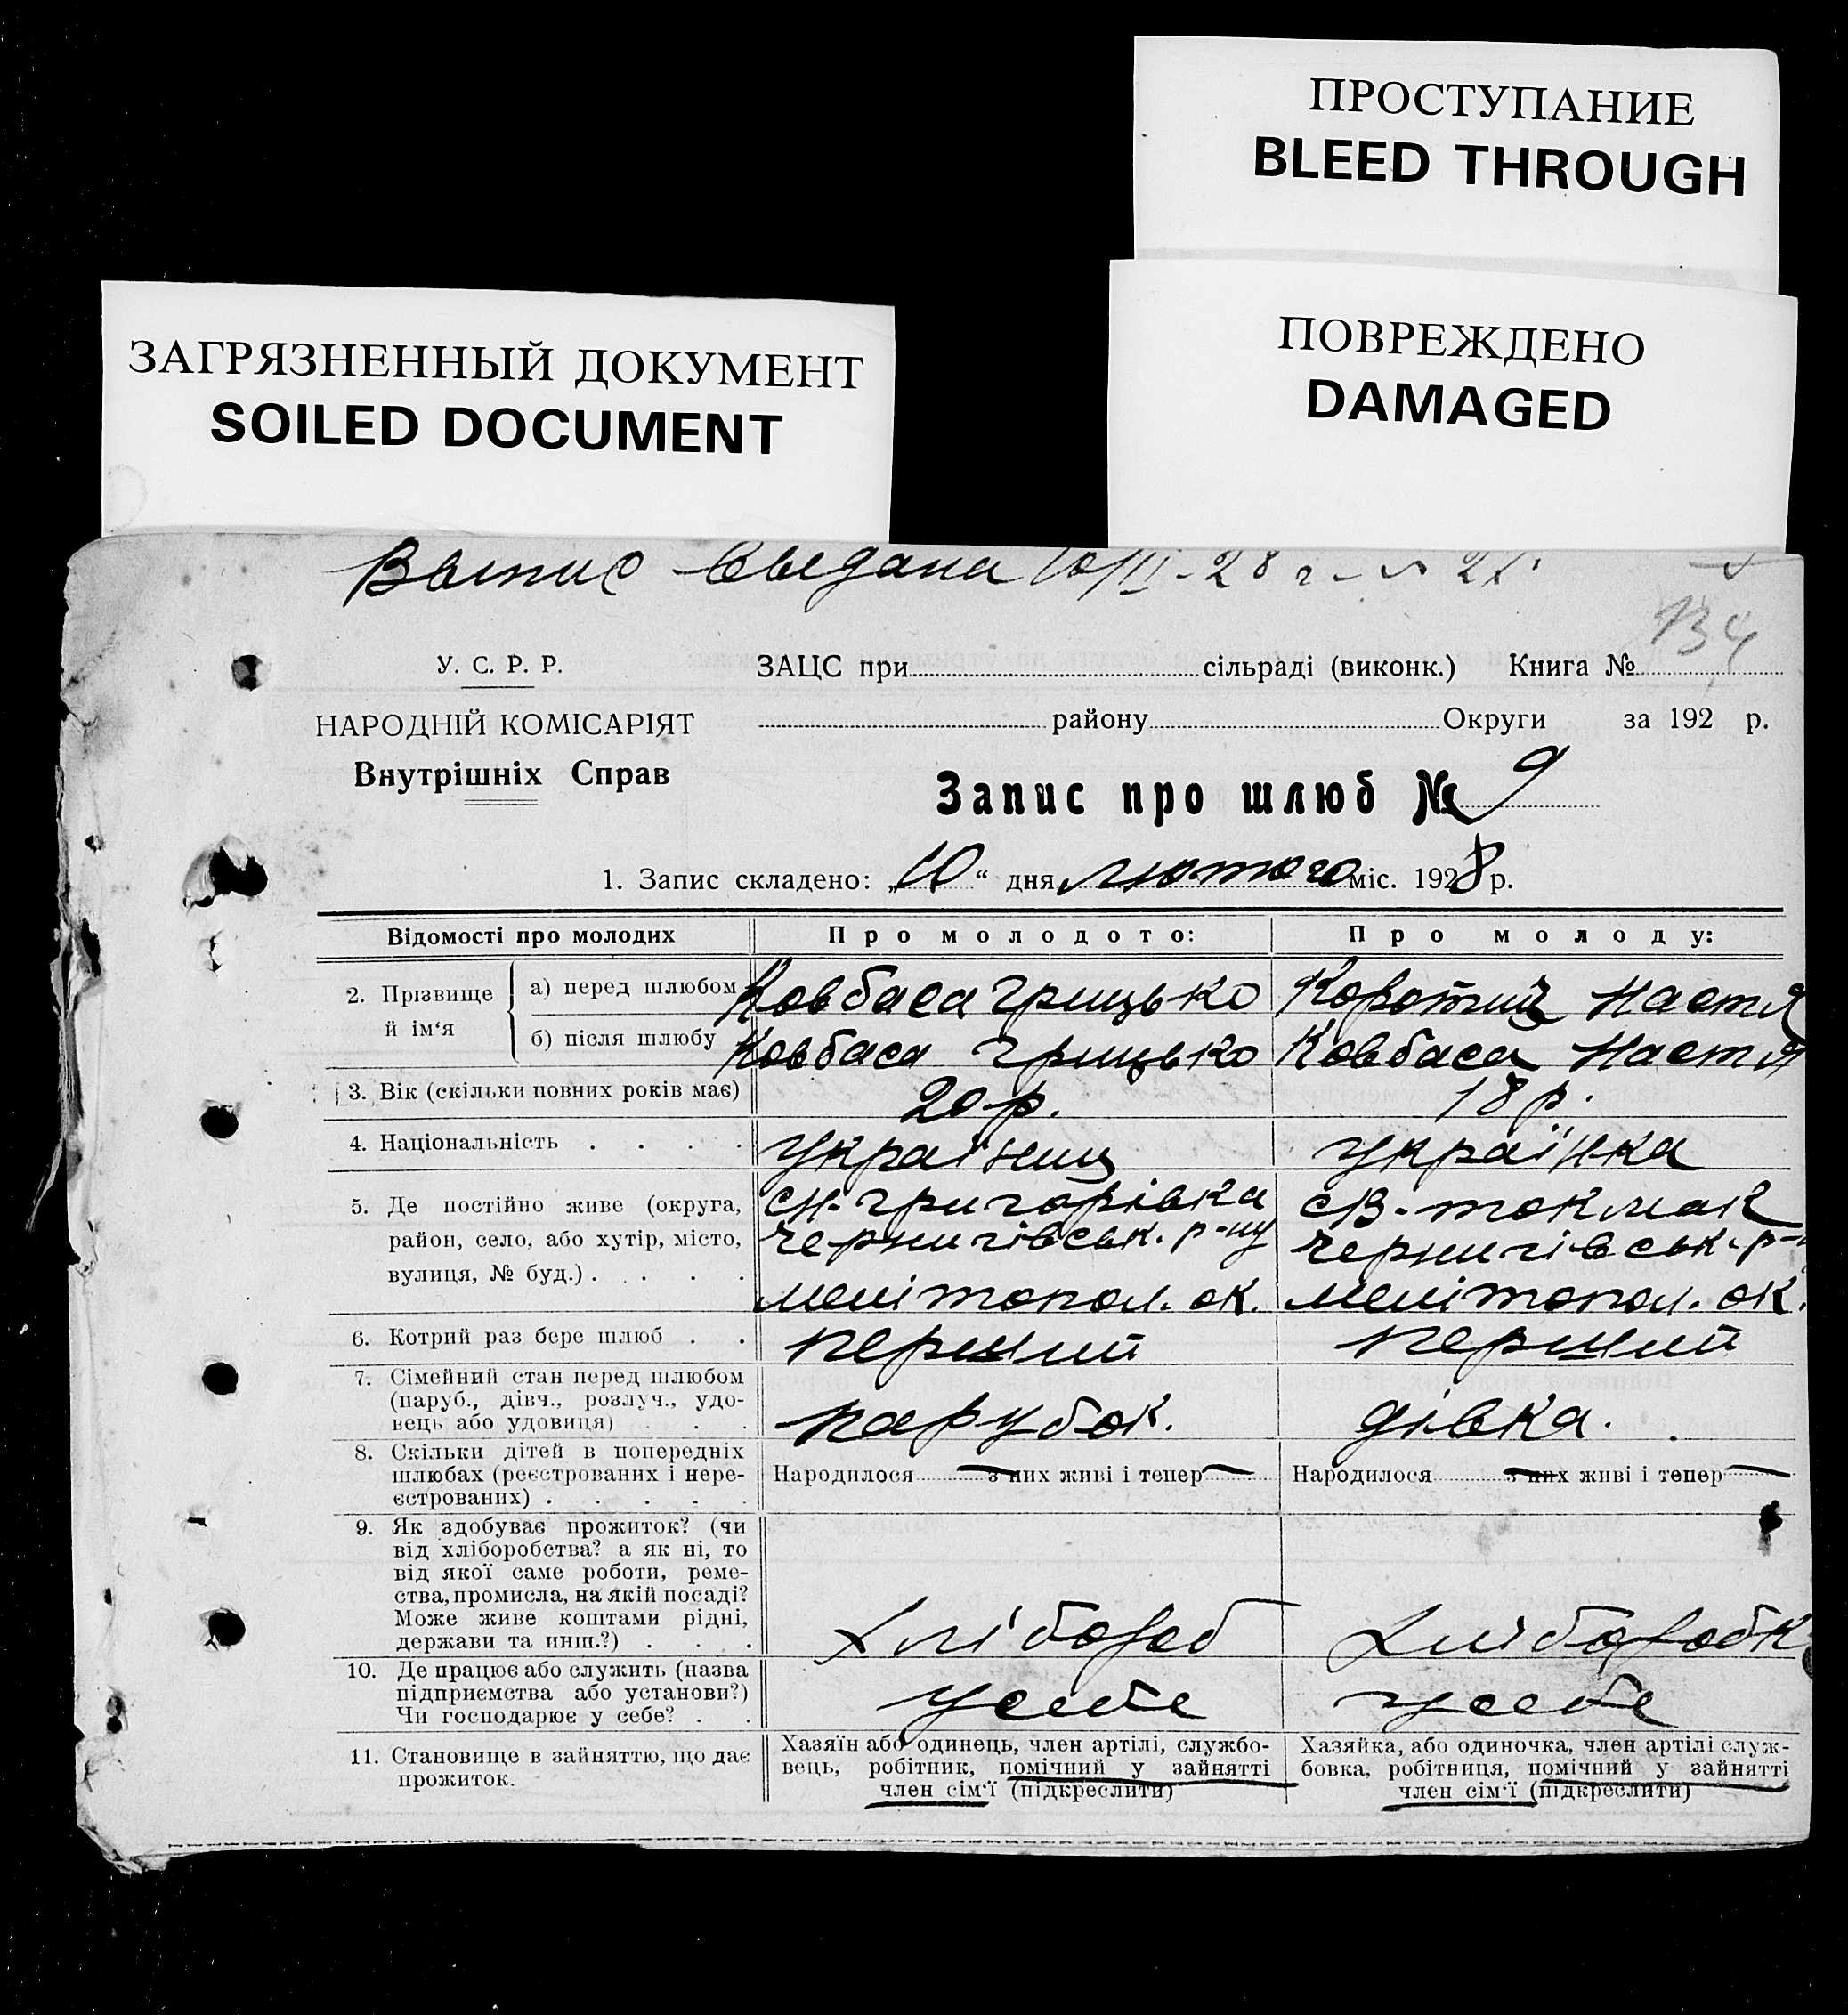 ПРОСТУПАНИЕ
BLEED THROUGH
ЗАГРЯЗНЕННЫЙ ДОКУМЕНТ
SOILED DOCUMENT
ПОВРЕЖДЕНО
DAMAGED
Выпис выдана 10/III-28 г-
134
У. С. Р. Р.
ЗАЦС при сільраді (виконк.) Книга №
НАРОДНІЙ КОМІСАРІЯТ
району Округи за 192 р.
Внутрішніх Справ
Запис про шлюб № 9
1. Запис складено: „10“ дня лютого міс. 1928 р.
Відомості про молодих
Про молодото:
Про молоду:
2. Прізвище й ім‘я
а) перед шлюбом
Ковбаса Грицько
Коротий Настя
б) після шлюбу
Ковбаса Грицько
Ковбаса Настя
3. Вік (скільки повних років має)
20 р.
18 р.
4. Національність . . . .
Українець
Українка
5. Де постійно живе (округа,
район, село, або хутір, місто,
вулиця, № буд.) . . . .
сн. григорівка
Чернигівськ. р-ну
мелітопол. ок.
св. токмак
Чернигівськ. р-
мелітопол. ок.
6. Котрий раз бере шлюб . .
перший
перший
7. Сімейний стан перед шлюбом
(паруб., дівч., розлуч., удо-
вець або удовиця) . . .
парубок.
дівка.
8. Скільки дітей в попередніх
шлюбах (реєстрованих і нере-
єстрованих) . . . . .
Народилося — з них живі і тепер —
Народилося — з них живі і тепер —
9. Як здобуває прожиток? (чи
від хліборобства? а як ні, то
від якої саме роботи, реме-
ства, промисла, на якій посаді?
Може живе коштами рідні,
держави та инш.?) . . .
Хлібороб
Хліборобк
10. Де працює або служить (назва
підприємства або установи?)
Чи господарює у себе? . .
у себе
у себе
11. Становище в зайняттю, що дає
прожиток.
Хазяїн або одинець, член артілі, службо-
вець, робітник, помічний у зайнятті
член сім‘ї (підкреслити)
Хазяйка, або одиночка, член артілі служ-
бовка, робітниця, помічний у зайнятті
член сім‘ї (підкреслити)